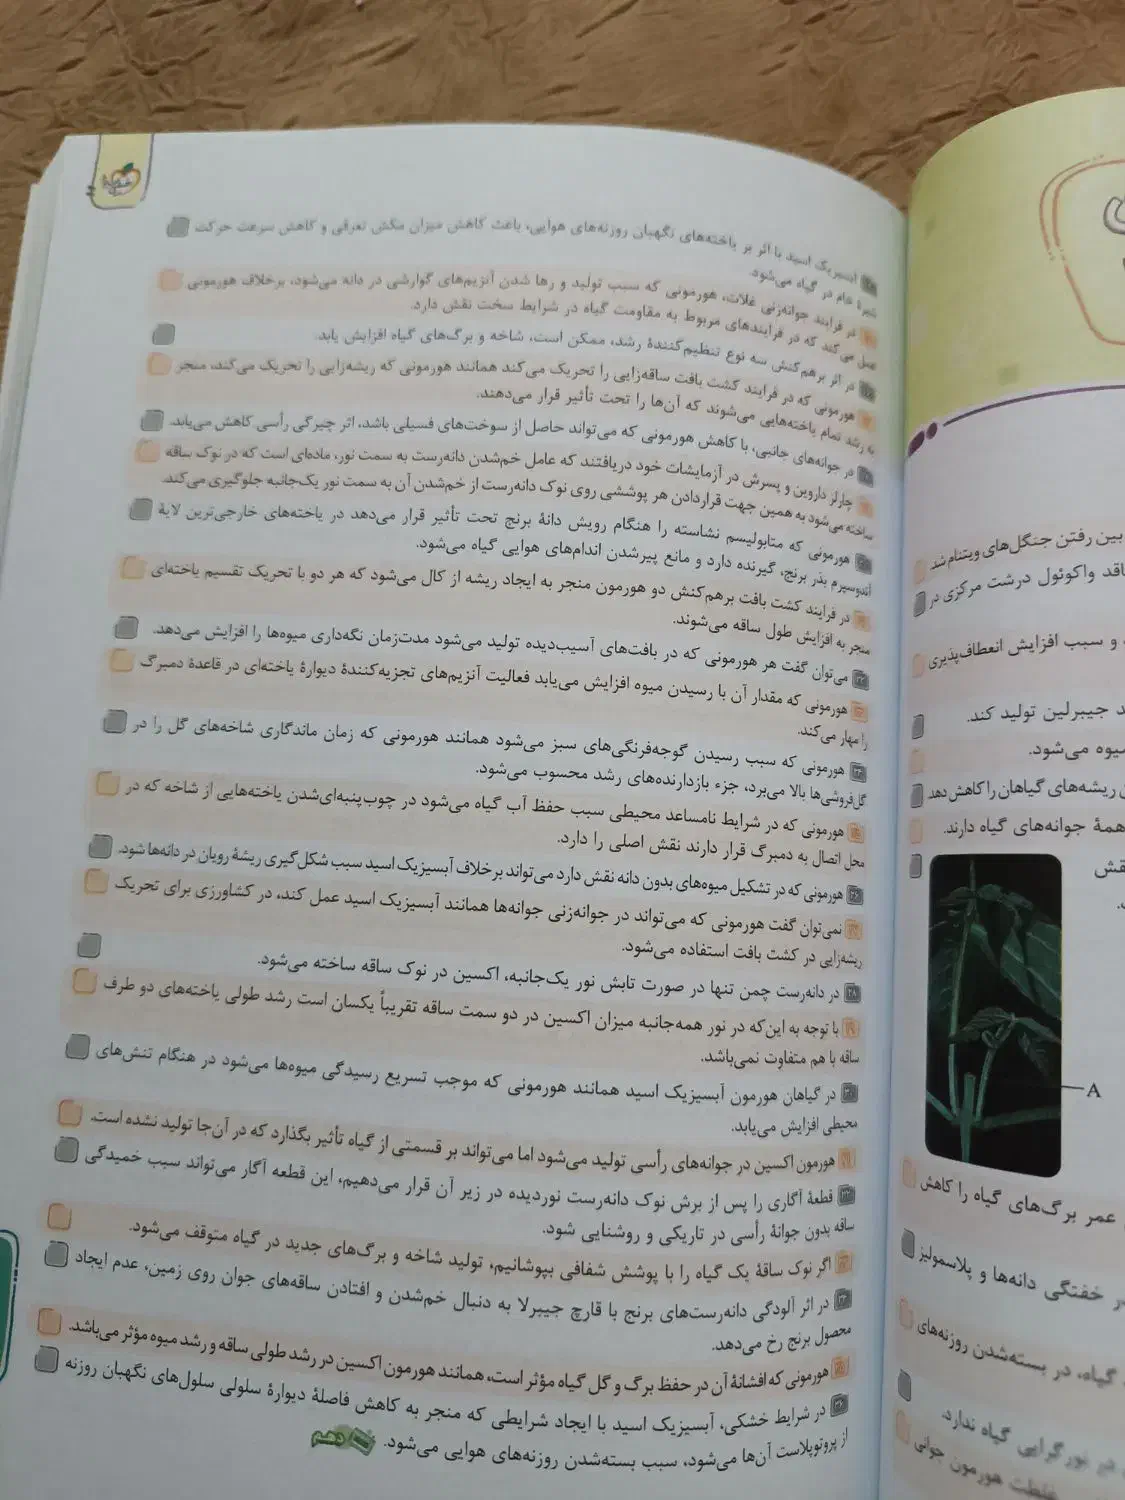 آبسیزیک اسید با اثر بر یاخته‌های نگهبان روزنه‌های هوایی، باعث کاهش میزان مکش تعرقی و کاهش سرعت حرکت
شیرهٔ خام در گیاه می‌شود.
در فرایند جوانه‌زنی غلات، هورمونی که سبب تولید و رها شدن آنزیم‌های گوارشی در دانه می‌شود، برخلاف هورمونی
عمل می‌کند که در فرایندهای مربوط به مقاومت گیاه در شرایط سخت نقش دارد.
در اثر برهم‌کنش سه نوع تنظیم‌کنندهٔ رشد، ممکن است، شاخه و برگ‌های گیاه افزایش یابد.
هورمونی که در فرایند کشت بافت ساقه‌زایی را تحریک می‌کند همانند هورمونی که ریشه‌زایی را تحریک می‌کند، منجر
به رشد تمام یاخته‌هایی می‌شوند که آن‌ها را تحت تأثیر قرار می‌دهند.
در جوانه‌های جانبی، با کاهش هورمونی که می‌تواند حاصل از سوخت‌های فسیلی باشد، اثر چیرگی رأسی کاهش می‌یابد.
چارلز داروین و پسرش در آزمایشات خود دریافتند که عامل خم‌شدن دانه‌رست به سمت نور، ماده‌ای است که در نوک ساقه
ساخته می‌شود به همین جهت قراردادن هر پوششی روی نوک دانه‌رست از خم‌شدن آن به سمت نور یک‌جانبه جلوگیری می‌کند.
هورمونی که متابولیسم نشاسته را هنگام رویش دانهٔ برنج تحت تأثیر قرار می‌دهد در یاخته‌های خارجی‌ترین لایهٔ
آندوسپرم بذر برنج، گیرنده دارد و مانع پیرشدن اندام‌های هوایی گیاه می‌شود.
در فرایند کشت بافت برهم‌کنش دو هورمون منجر به ایجاد ریشه از کال می‌شود که هر دو با تحریک تقسیم یاخته‌ای
منجر به افزایش طول ساقه می‌شوند.
می‌توان گفت هر هورمونی که در بافت‌های آسیب‌دیده تولید می‌شود مدت‌زمان نگه‌داری میوه‌ها را افزایش می‌دهد.
هورمونی که مقدار آن با رسیدن میوه افزایش می‌یابد فعالیت آنزیم‌های تجزیه‌کنندهٔ دیوارهٔ یاخته‌ای در قاعدهٔ دمبرگ
را مهار می‌کند.
هورمونی که سبب رسیدن گوجه‌فرنگی‌های سبز می‌شود همانند هورمونی که زمان ماندگاری شاخه‌های گل را در
گل‌فروشی‌ها بالا می‌برد، جزء بازدارنده‌های رشد محسوب می‌شود.
هورمونی که در شرایط نامساعد محیطی سبب حفظ آب گیاه می‌شود در چوب‌پنبه‌ای‌شدن یاخته‌هایی از شاخه که در
محل اتصال به دمبرگ قرار دارند نقش اصلی را دارد.
هورمونی که در تشکیل میوه‌های بدون دانه نقش دارد می‌تواند برخلاف آبسیزیک اسید سبب شکل‌گیری ریشهٔ رویان در دانه‌ها شود.
نمی‌توان گفت هورمونی که می‌تواند در جوانه‌زنی جوانه‌ها همانند آبسیزیک اسید عمل کند، در کشاورزی برای تحریک
ریشه‌زایی در کشت بافت استفاده می‌شود.
در دانه‌رست چمن تنها در صورت تابش نور یک‌جانبه، اکسین در نوک ساقه ساخته می‌شود.
با توجه به این‌که در نور همه‌جانبه میزان اکسین در دو سمت ساقه تقریباً یکسان است رشد طولی یاخته‌های دو طرف
ساقه با هم متفاوت نمی‌باشد.
در گیاهان هورمون آبسیزیک اسید همانند هورمونی که موجب تسریع رسیدگی میوه‌ها می‌شود در هنگام تنش‌های
محیطی افزایش می‌یابد.
هورمون اکسین در جوانه‌های رأسی تولید می‌شود اما می‌تواند بر قسمتی از گیاه تأثیر بگذارد که در آن‌جا تولید نشده است.
قطعهٔ آگاری را پس از برش نوک دانه‌رست نوردیده در زیر آن قرار می‌دهیم، این قطعه آگار می‌تواند سبب خمیدگی
ساقه بدون جوانهٔ رأسی در تاریکی و روشنایی شود.
اگر نوک ساقهٔ یک گیاه را با پوشش شفافی بپوشانیم، تولید شاخه و برگ‌های جدید در گیاه متوقف می‌شود.
در اثر آلودگی دانه‌رست‌های برنج با قارچ جیبرلا به دنبال خم‌شدن و افتادن ساقه‌های جوان روی زمین، عدم ایجاد
محصول برنج رخ می‌دهد.
هورمونی که افشانهٔ آن در حفظ برگ و گل گیاه مؤثر است، همانند هورمون اکسین در رشد طولی ساقه و رشد میوه مؤثر می‌باشد.
در شرایط خشکی، آبسیزیک اسید با ایجاد شرایطی که منجر به کاهش فاصلهٔ دیوارهٔ سلولی سلول‌های نگهبان روزنه
از پروتوپلاست آن‌ها می‌شود، سبب بسته‌شدن روزنه‌های هوایی می‌شود. دهم
بین رفتن جنگل‌های ویتنام شد.
فاقد واکوئول درشت مرکزی در
و سبب افزایش انعطاف‌پذیری
جیبرلین تولید کند.
میوه می‌شود.
ریشه‌های گیاهان را کاهش دهد.
همهٔ جوانه‌های گیاه دارند.
نقش
A
عمر برگ‌های گیاه را کاهش
خفتگی دانه‌ها و پلاسمولیز
گیاه، در بسته‌شدن روزنه‌های
در نورگرایی گیاه ندارد.
غلظت هورمون جوانی